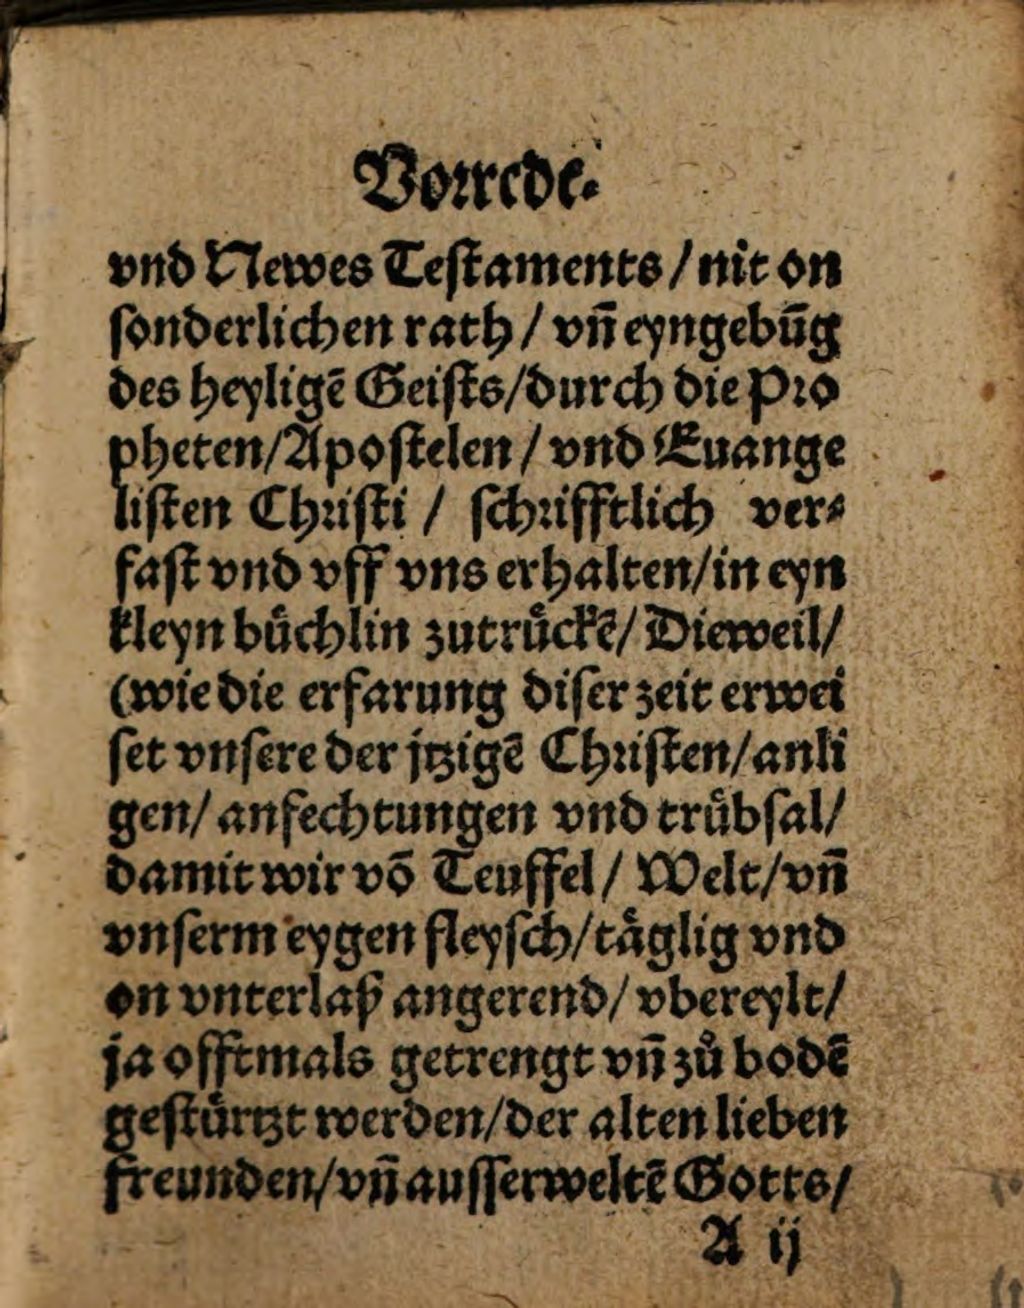 Vorrede.
vnd Newes Testaments / nit on
sonderlichen rath / vn̄ eyngebūg
des heyligē Geists / durch die Pro
pheten / Apostelen / vnd Euange
listen Christi / schrifftlich ver⸗
fast vnd vff vns erhalten / in eyn
kleyn bůchlin zutrůckē / Dieweil /
(wie die erfarung diser zeit erwei
set vnsere der jtzigē Christen / anli
gen / anfechtungen vnd trůbsal /
damit wir vō Teuffel / Welt / vn̄
vnserm eygen fleysch / täglig vnd
on vnterlaß angerend / vbereylt /
ja offtmals getrengt vn̄ zů bodē
gestůrtzt werden / der alten lieben
freunden / vn̄ ausserweltē Gotts /
A ij